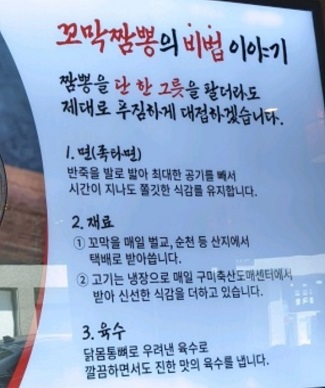 꼬막짬뽕의 비법 이야기
짬뽕을 단 한 그릇을 팔더라도
제대로 푸짐하게 대접하겠습니다.
1. 면(족타면)
반죽을 발로 밟아 최대한 공기를 빼서
시간이 지나도 쫄깃한 식감를 유지합니다.
2. 재료
① 꼬막을 매일 벌교, 순천 등 산지에서
택배로 받아씁니다.
② 고기는 냉장으로 매일 구미축산도매센터에서
받아 신선한 식감을 더하고 있습니다.
3. 육수
닭몸통뼈로 우려낸 육수로
깔끔하면서도 진한 맛의 육수를 냅니다.